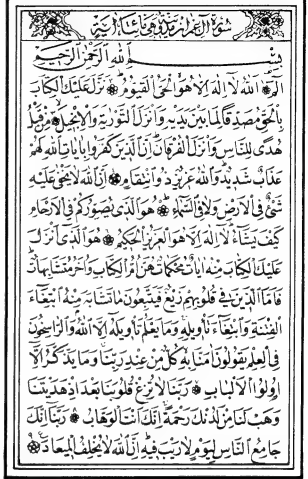 سورة ال عمران مدنية وهي مائتا اية
بسم الله الرحمن الرحيم
الم ۝ الله لا اله الا هو الحي القيوم ۝ نزل عليك الكتاب
بالحق مصدقا لما بين يديه وانزل التورية والانجيل ۝ من قبل
هدى للناس وانزل الفرقان ۝ ان الذين كفروا بايات الله لهم
عذاب شديد والله عزيز ذو انتقام ۝ ان الله لا يخفى عليه
شئ في الارض ولا في السماء ۝ هو الذي يصوركم في الارحام
كيف يشاء لا اله الا هو العزيز الحكيم ۝ هو الذي انزل
عليك الكتاب منه ايات محكمات هن ام الكتاب واخر متشابهات
فاما الذين في قلوبهم زيغ فيتبعون ما تشابه منه ابتغاء
الفتنة وابتغاء تأويله وما يعلم تأويله الا الله والراسخون
في العلم يقولون امنا به كل من عند ربنا وما يذكر الا
اولوا الالباب ۝ ربنا لا تزغ قلوبنا بعد اذ هديتنا
وهب لنا من لدنك رحمة انك انت الوهاب ۝ ربنا انك
جامع الناس ليوم لا ريب فيه ان الله لا يخلف الميعاد ۝